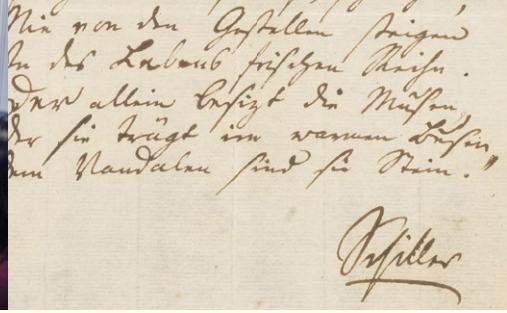 Nie von den Gestellen steigen
In des Lebens frischen Reihn.
Der allein besizt die Musen,
der sie trägt im warmen Busen,
dem Vandalen sind sie Stein."
Schiller